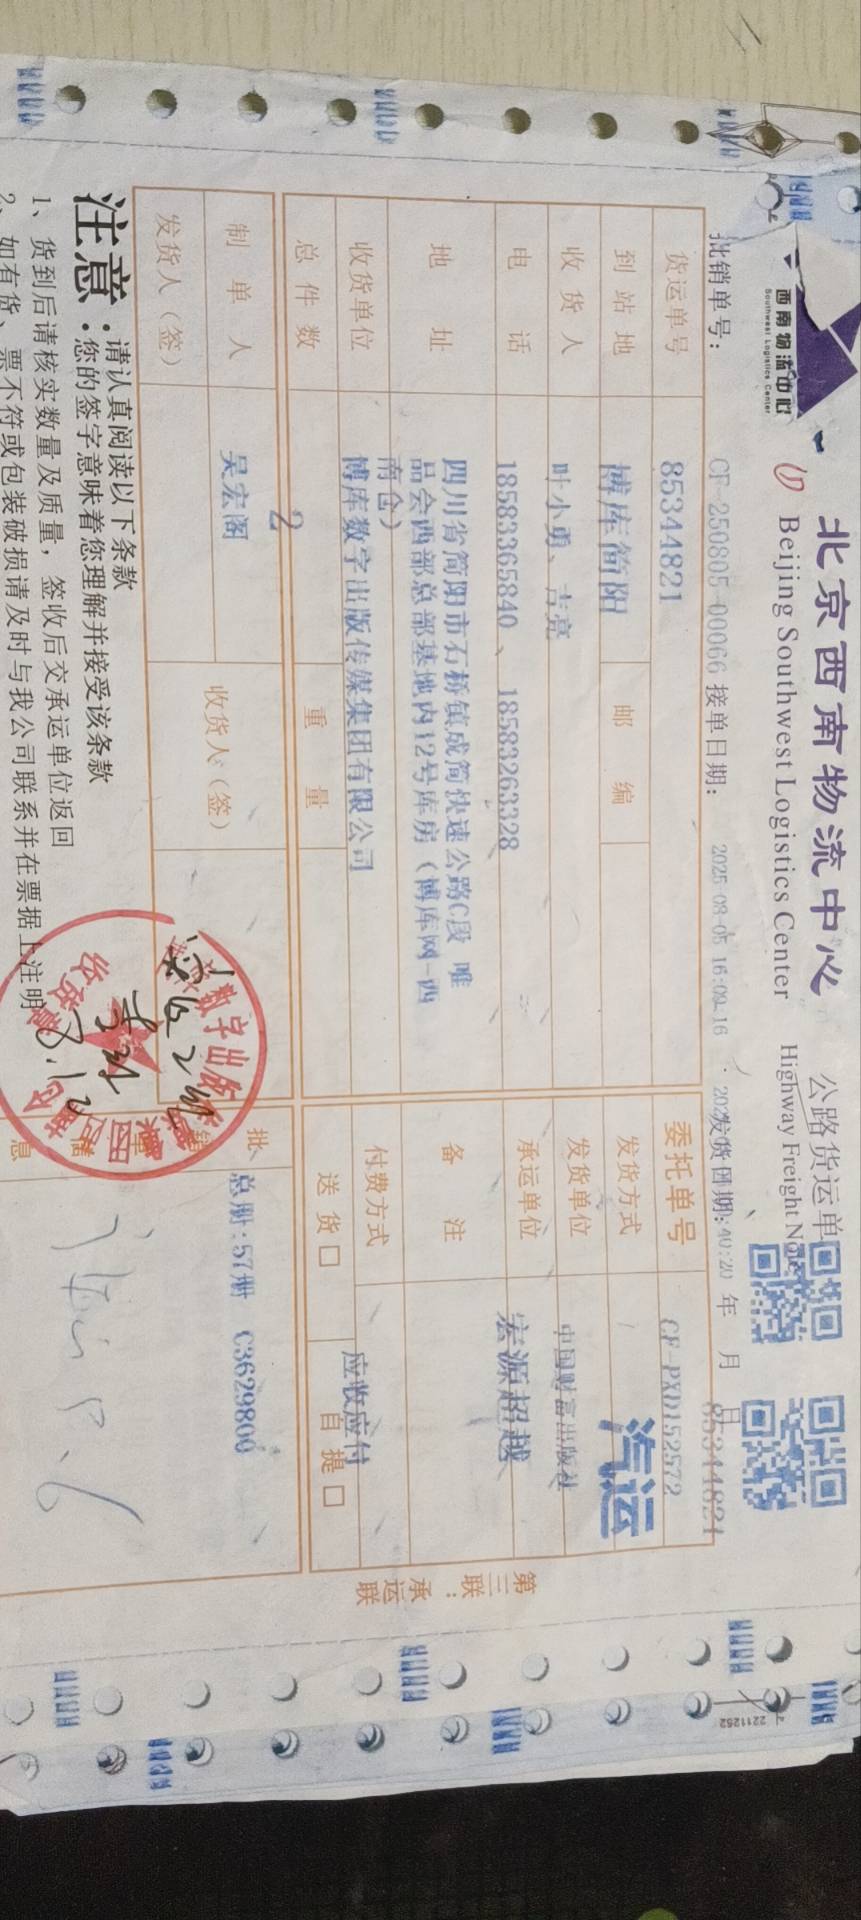 西南物流中心
Southwest Logistics Center
北京西南物流中心 公路货运单
(1) Beijing Southwest Logistics Center Highway Freight Note
批销单号: CF-250805-00066 接单日期: 2025-08-05 16:09:16 发货日期: 年 月 日
85344821
货运单号 85344821 委托单号 CF-PXD152572
到站地 博库简阳 邮编 发货方式 汽运
收货人 叶小勇、吉亮 发货单位 中国财富出版社
电话 18583365840、18583263328 承运单位 宏源超越
地址 四川省简阳市石桥镇成简快速公路C段 唯
品会西部总部基地内12号库房(博库网-西
南仓)
备注
收货单位 博库数字出版传媒集团有限公司 付费方式 应收应付
总件数 2 重量 送货□ 自提□
制单人 吴宏阁 收货人(签)
发货人(签)
总册:57册 C3629800
注意:请认真阅读以下条款
您的签字意味着您理解并接受该条款
1、货到后请核实数量及质量,签收后交承运单位返回
2、如有货、票不符或包装破损请及时与我公司联系并在票据上注明
第三联:承运联
2211262